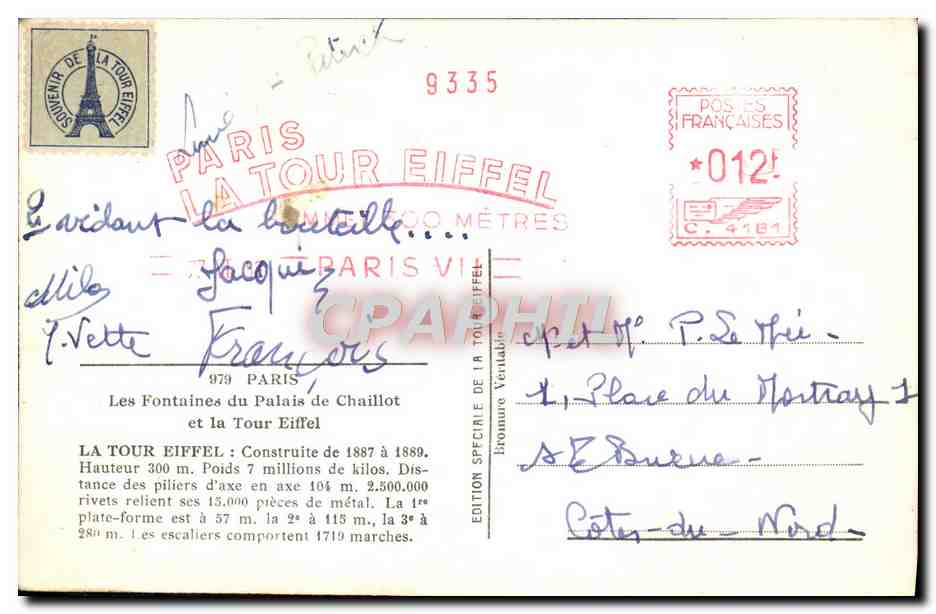 SOUVENIR DE LA TOUR EIFFEL
Patrick
9335
POSTES
FRANÇAISES
*012F
C. 4181
PARIS
LA TOUR EIFFEL
300 MÈTRES
PARIS VII
En vidant la bouteille....
Milo Jacqui
Y. Vette François
CPAPHIL
979 PARIS
Les Fontaines du Palais de Chaillot
et la Tour Eiffel
LA TOUR EIFFEL : Construite de 1887 à 1889.
Hauteur 300 m. Poids 7 millions de kilos. Dis-
tance des piliers d'axe en axe 104 m. 2.500.000
rivets relient ses 15.000 pièces de métal. La 1re
plate-forme est à 57 m. la 2e à 115 m., la 3e à
280 m. Les escaliers comportent 1710 marches.
EDITION SPECIALE DE LA TOUR EIFFEL
Bromure Véritable
Mr et Me P. Le Mée -
1, Place du Martray 1
St Brieuc -
Côtes-du-Nord -